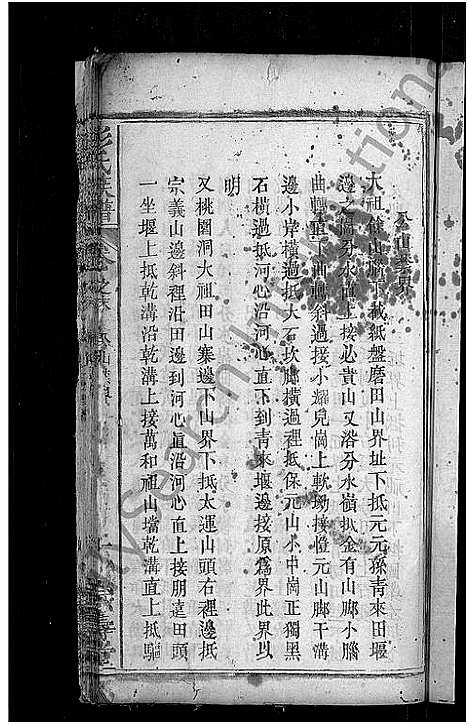 公山業界
大祖保山腳下截紙盤磨田山界址下抵元元孫青來田堰
邊之崗分水嶺上接必貴山又沿分水嶺抵金有山腳小腦
曲轉直下曲斜過接小耀兒崗上軟坳接愷元山腳干溝
邊小岸橫過抵大石坎腳橫過裡抵保元山小中崗正獨黑
石橫過抵河心沿河心直下到青來堰邊接原爲界此界以
明
又桃園洞大祖田山寨邊下山界下抵太運山頭右裡邊抵
宗義山邊斜裡沿田邊到河心直沿河心直上接朋遠田頭
一坐堰上抵乾溝沿乾溝上接萬和祖山壋乾溝直上抵驅
彭氏族譜